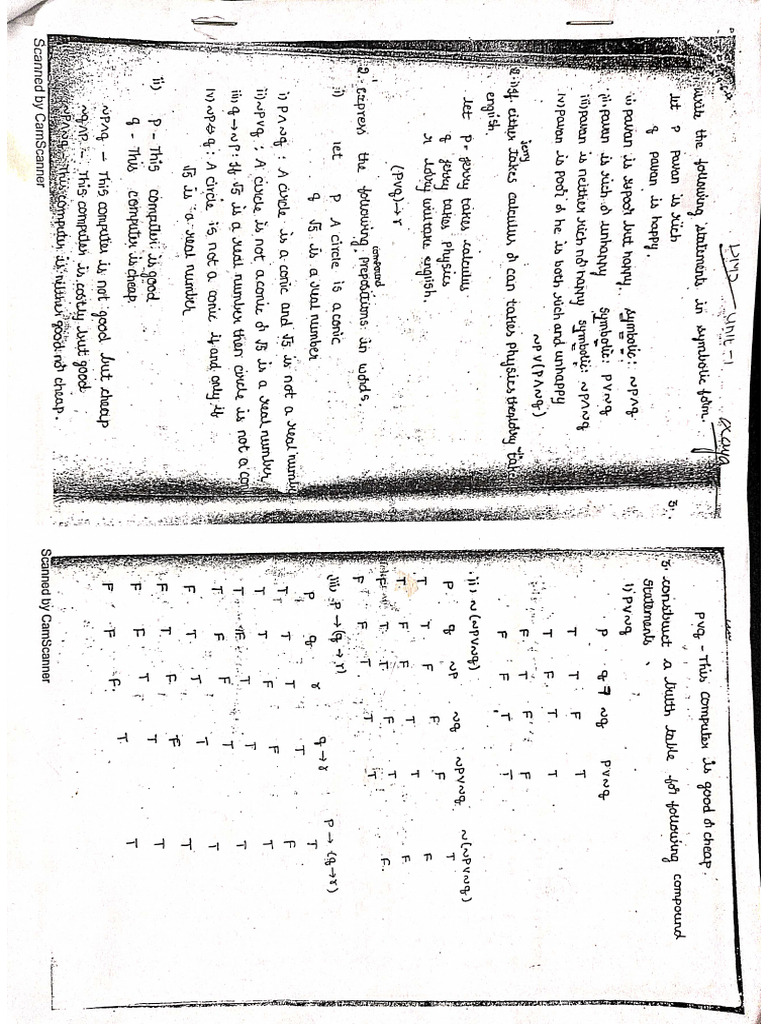 Unit-1
write the following statements in symbolic form.
let P Pavan is rich
q pavan is happy.
i) pavan is poor but happy. symbolic: ~p∧q
ii) pavan is rich or unhappy symbolic: PV~q
iii) pavan is neither rich nor happy symbolic: ~p∧~q
iv) pavan is poor or he is both rich and unhappy
~p∨(p∧~q)
if either jerry takes calculus or can takes physics then lory will take
english.
let p- jerry takes calculus
q jerry takes physics
r lory will take english.
(pvq)→r
2. Express the following compound prepositions in words.
i) let p A circle is a conic
q √5 is a real number
i) P∧~q : A circle is a conic and √5 is not a real number
ii) ~pvq : A circle is not a conic or √5 is a real number
iii) q→~p : If √5 is a real number then circle is not a co
iv) ~p⇔q : A circle is not a conic if and only if
√5 is a real number
ii) P - This computer is good
q - This computer is cheap
~p∧q - This computer is not good but cheap
~q∧p - This computer is costly but good
~p∧~q - This computer is neither good nor cheap.
Scanned by CamScanner
pvq - This computer is good or cheap.
3. construct a truth table for following compound
statements.
i) p∨~q
P q ~q p∨~q
T T F T
T F T T
F T F F
F F T T
ii) ~(~p∨~q)
P q ~p ~q ~p∨~q ~(~p∨~q)
T T F F F T
T F F T T F
F T T F T F
F F T T T F
iii) P→(q→r)
P q r q→r P→(q→r)
T T T T T
T T F F F
T F T T T
T F F T T
F T T T T
F T F F T
F F T T T
F F F T T
Scanned by CamScanner